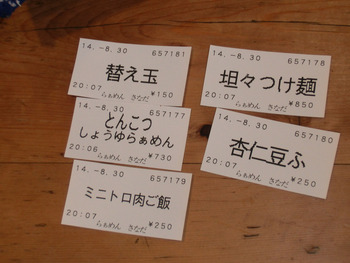 14.-8.30 657181
替え玉
20:07 ¥150
らぁめん きなだ
14.-8.30 657177
とんこう
しょうゆらぁめん
20:06 ¥730
らぁめん きなだ
14.-8.30 657179
ミニトロ肉ご飯
20:07 ¥250
らぁめん きなだ
14.-8.30 657178
坦々つけ麺
20:07 ¥850
らぁめん きなだ
14.-8.30 657180
杏仁豆ふ
20:07 ¥250
らぁめん きなだ